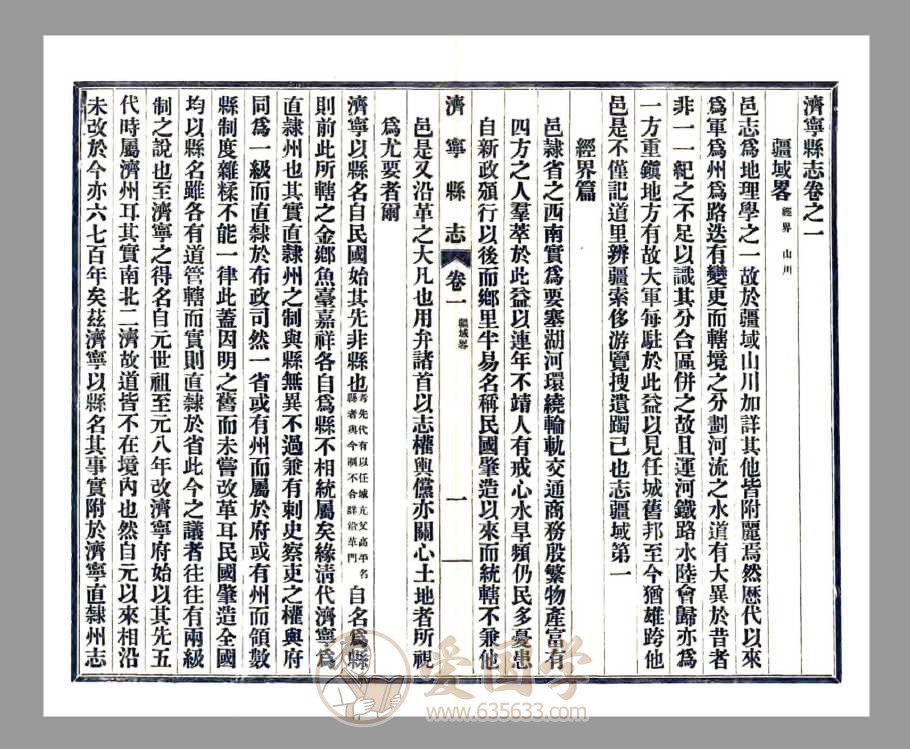 濟寧縣志卷之一
疆域畧 經界 山川
邑志爲地理學之一故於疆域山川加詳其他皆附麗焉然歷代以來
爲軍爲州爲路迭有變更而轄境之分劃河流之水道有大異於昔者
非一一紀之不足以識其分合區併之故且運河鐵路水陸會歸亦爲
一方重鎭地方有故大軍每駐於此益以見任城舊邦至今猶雄跨他
邑是不僅記道里辨疆索侈游覽搜遺躅已也志疆域第一
經界篇
邑隷省之西南實爲要塞湖河環繞輪軌交通商務殷繁物產富有
四方之人羣萃於此益以連年不靖人有戒心水旱頻仍民多憂患
自新政頒行以後而鄉里半易名稱民國肇造以來而統轄不兼他
濟寧縣志 卷一 疆域畧 一
邑是又沿革之大凡也用弁諸首以志權輿儻亦關心土地者所視
爲尤要者爾
濟寧以縣名自民國始其先非縣也 考先代有以任城亢父高平名縣者與今制不合詳沿革門 自名爲縣
則前此所轄之金鄉魚臺嘉祥各自爲縣不相統屬矣緣淸代濟寧爲
直隷州也其實直隷州之制與縣無異不過兼有刺史察吏之權與府
同爲一級而直隷於布政司然一省或有州而屬於府或有州而領數
縣制度雜糅不能一律此蓋因明之舊而未嘗改革耳民國肇造全國
均以縣名雖各有道管轄而實則直隷於省此今之議者往往有兩級
制之說也至濟寧之得名自元世祖至元八年改濟寧府始以其先五
代時屬濟州耳其實南北二濟故道皆不在境內也然自元以來相沿
未改於今亦六七百年矣玆濟寧以縣名其事實附於濟寧直隷州志
爱国学
www.635633.com